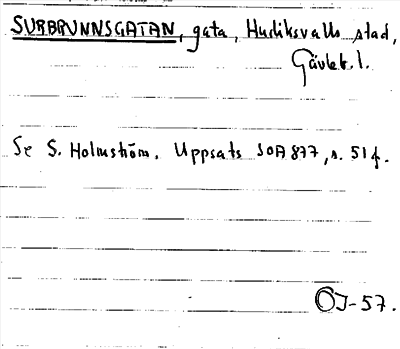 SURBRUNNSGATAN, gata, Hudiksvalls stad,
Gävleb. l.
Se S. Holmström. Uppsats SOA 877, s. 51 f.
ÖJ-57.